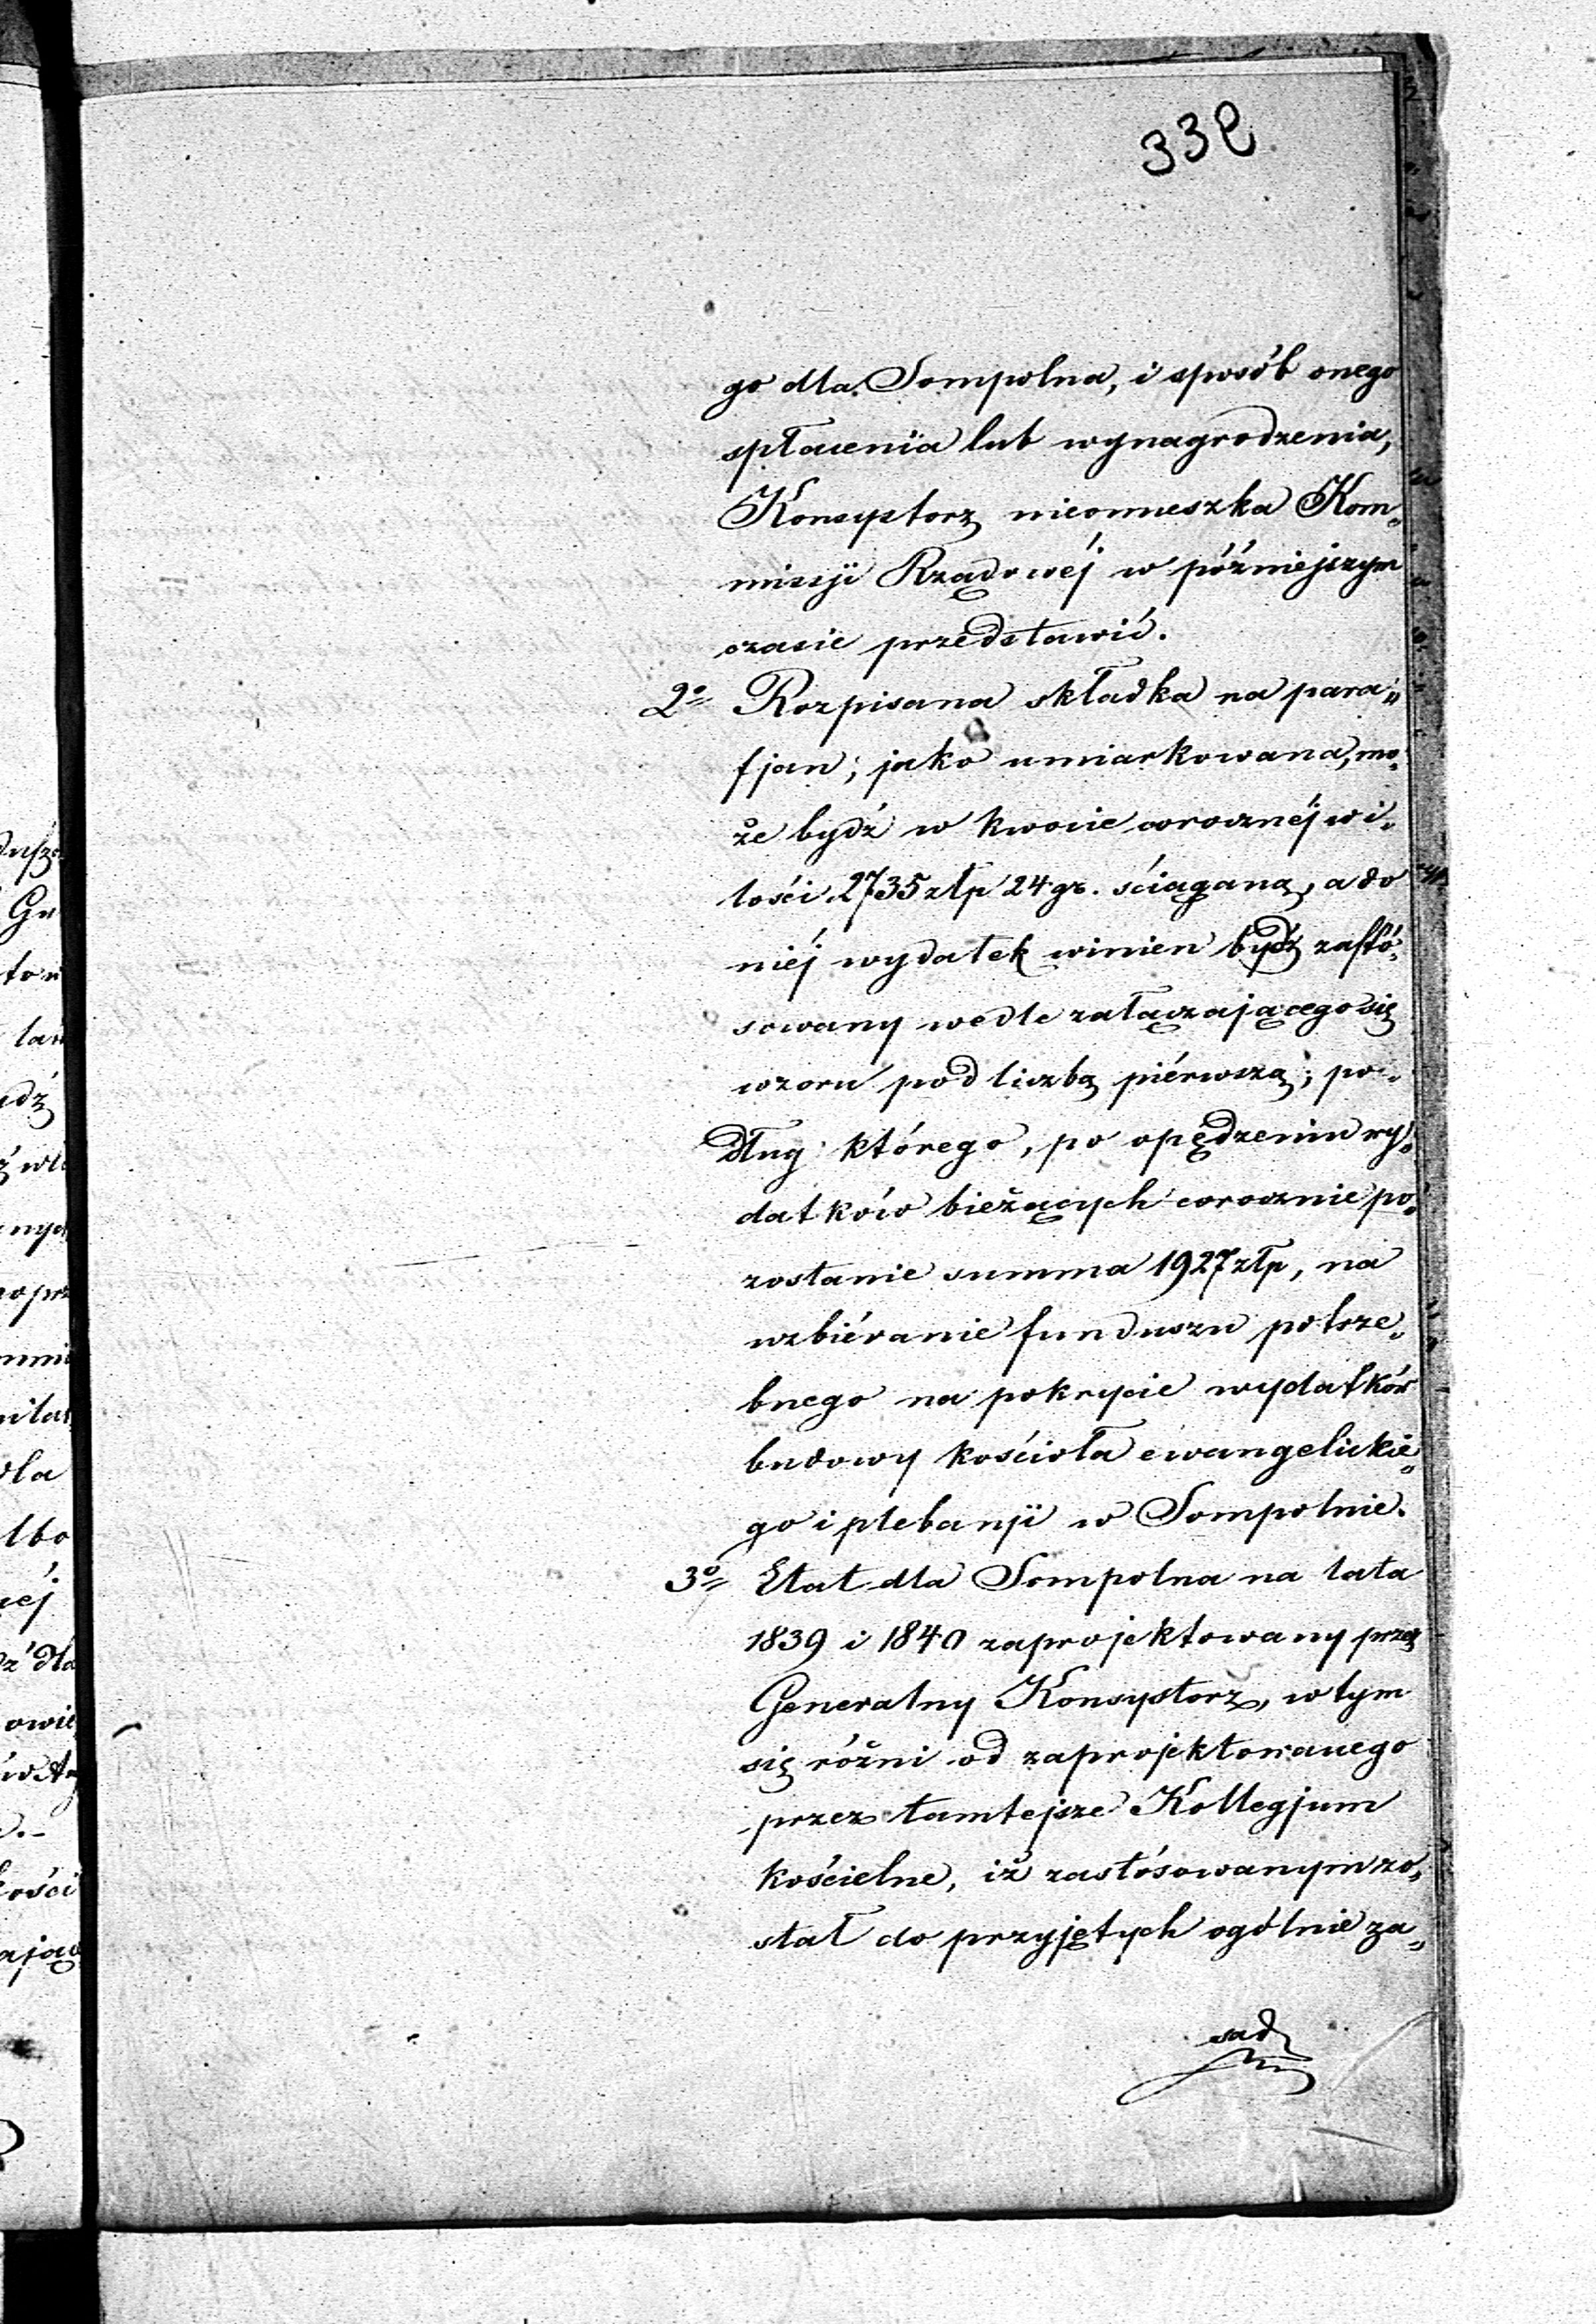 332
go dla Sompolna, i sposób onego
spłacenia lub wynagrodzenia,
Konsystorz nieomieszka Kom„
missji Rządowéj w późniejszym
czasie przedstawić.
2o= Rozpisana składka na para„
fjan; jako umiarkowana, mo„
że bydź w kwocie corocznéj wi„
lości 2735 złp 24 gr. ściąganą, a do
niéj wydatek winien bydź zastó„
sowany wedle załączającego się
wzoru pod liczbą piérwszą; po„
dług którego, po opędzeniu wy„
datków bieżących corocznie po„
zostanie summa 1927 złp, na
uzbiéranie funduszu potrze„
bnego na pokrycie wydatków
budowy kościoła ewangelickie„
go i plebanji w Sompolnie.
3o= Etat dla Sompolna na lata
1839 i 1840 zaprojektowany przez
Generalny Konsystorz, w tym
się różni od zaprojektowanego
przez tamtejsze Kollegjum
kościelne, iż zastósowanym zo„
stał do przyjętych ogólnie za„
sad